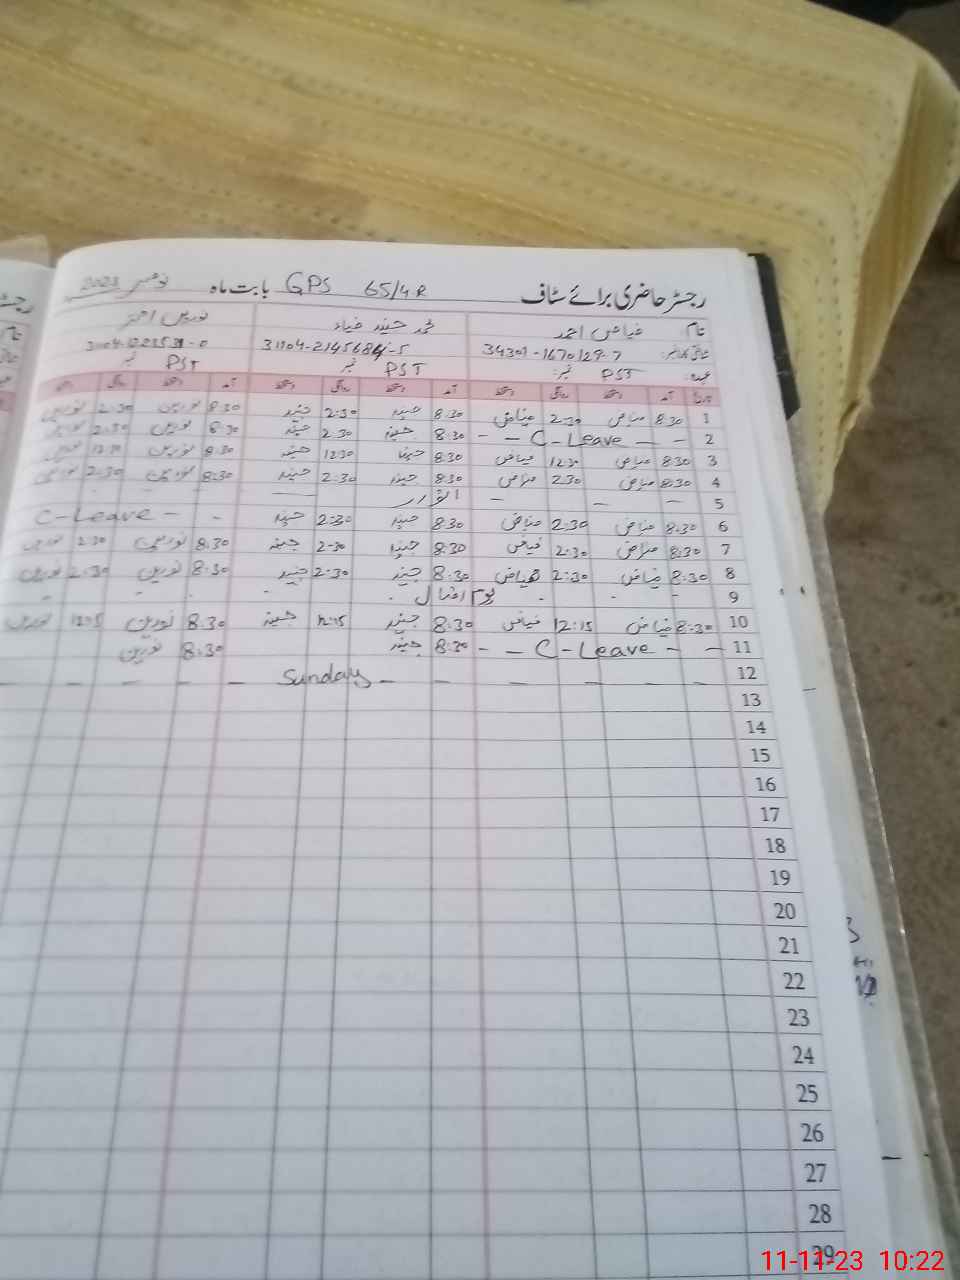 رجسٹر حاضری برائے سٹاف GPS 65/4R بابت ماہ نومبر 2023
نام فیاض احمد محمد جنید ضیاء نورین اختر
34301-1670129-7 31104-2145684-5
عہدہ PST نمبر: PST نمبر PST نمبر
تاریخ آمد دستخط روانگی دستخط آمد دستخط روانگی دستخط آمد دستخط روانگی دستخط
1 8:30 فیاض 2:30 فیاض 8:30 جنید 2:30 جنید 8:30 نورین 2:30 نورین
2 - - C-Leave - - 8:30 جنید 2:30 جنید 8:30 نورین 2:30 نورین
3 8:30 فیاض 12:30 فیاض 8:30 جنید 12:30 جنید 8:30 نورین 12:30 نورین
4 8:30 فیاض 2:30 فیاض 8:30 جنید 2:30 جنید 8:30 نورین 2:30 نورین
5 - - - اتوار -
6 8:30 فیاض 2:30 فیاض 8:30 جنید 2:30 جنید - - C-Leave
7 8:30 فیاض 2:30 فیاض 8:30 جنید 2:30 جنید 8:30 نورین 2:30 نورین
8 8:30 فیاض 2:30 فیاض 8:30 جنید 2:30 جنید 8:30 نورین 2:30 نورین
9 - - - یوم اقبال - - - -
10 8:30 فیاض 12:15 فیاض 8:30 جنید 12:15 جنید 8:30 نورین 12:15 نورین
11 - - C-Leave - - 8:30 جنید 8:30 نورین
12 - - - - - - Sunday - - - - -
13
14
15
16
17
18
19
20
21
22
23
24
25
26
27
28
29
11-11-23 10:22